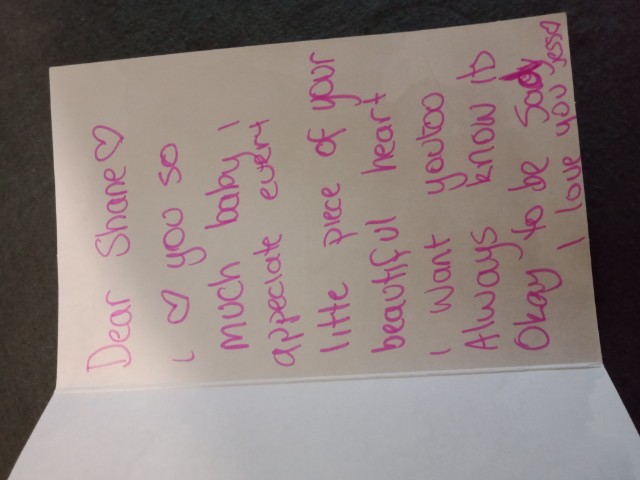 Dear Shane♡
i ♡ you so
much baby I
appreciate every
little piece of your
beautiful heart
i want youtoo
Always know its
Okay to be Sad
I love you Jess♡